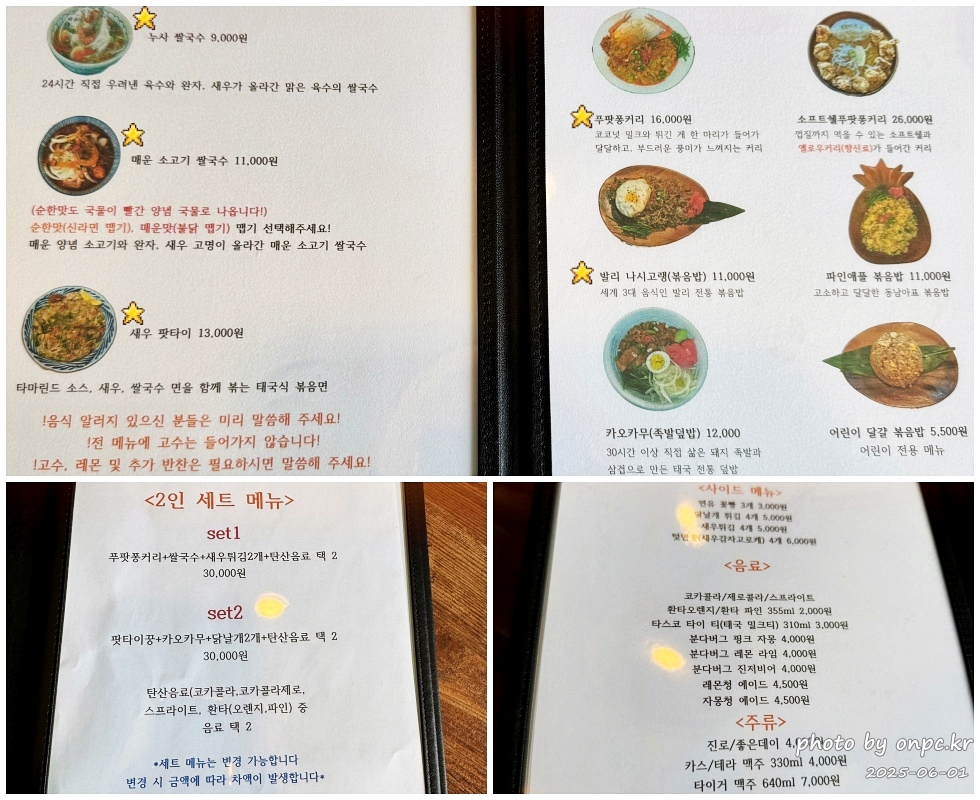 누사 쌀국수 9,000원
24시간 직접 우려낸 육수와 완자, 새우가 올라간 맑은 육수의 쌀국수
매운 소고기 쌀국수 11,000원
(순한맛도 국물이 빨간 양념 국물로 나옵니다!)
순한맛(신라면 맵기), 매운맛(불닭 맵기) 맵기 선택해주세요!
매운 양념 소고기와 완자, 새우 고명이 올라간 매운 소고기 쌀국수
새우 팟타이 13,000원
타마린드 소스, 새우, 쌀국수 면을 함께 볶는 태국식 볶음면
!음식 알러지 있으신 분들은 미리 말씀해 주세요!
!전 메뉴에 고수는 들어가지 않습니다!
!고수, 레몬 및 추가 반찬은 필요하시면 말씀해 주세요!
푸팟퐁커리 16,000원
코코넛 밀크와 튀긴 게 한 마리가 들어가
달달하고, 부드러운 풍미가 느껴지는 커리
소프트쉘푸팟퐁커리 26,000원
껍질까지 먹을 수 있는 소프트쉘과
옐로우커리(향신료)가 들어간 커리
발리 나시고랭(볶음밥) 11,000원
세계 3대 음식인 발리 전통 볶음밥
파인애플 볶음밥 11,000원
고소하고 달달한 동남아표 볶음밥
카오카무(족발덮밥) 12,000
30시간 이상 직접 삶은 돼지 족발과
삼겹으로 만든 태국 전통 덮밥
어린이 달걀 볶음밥 5,500원
어린이 전용 메뉴
<2인 세트 메뉴>
set1
푸팟퐁커리+쌀국수+새우튀김2개+탄산음료 택 2
30,000원
set2
팟타이꿍+카오카무+닭날개2개+탄산음료 택 2
30,000원
탄산음료(코카콜라,코카콜라제로,
스프라이트, 환타(오렌지,파인) 중
음료 택 2
*세트 메뉴는 변경 가능합니다
변경 시 금액에 따라 차액이 발생합니다*
<사이드 메뉴>
연유 꽃빵 3개 3,000원
닭날개 튀김 4개 5,000원
새우튀김 4개 5,000원
(새우감자고로케) 4개 6,000원
<음료>
코카콜라/제로콜라/스프라이트
환타오렌지/환타 파인 355ml 2,000원
타스코 타이 티(태국 밀크티) 310ml 3,000원
분다버그 핑크 자몽 4,000원
분다버그 레몬 라임 4,000원
분다버그 진저비어 4,000원
레몬청 에이드 4,500원
자몽청 에이드 4,500원
<주류>
진로/좋은데이
카스/테라 맥주 330ml 4,000원
타이거 맥주 640ml 7,000원
photo by onpc.kr
2025-06-01